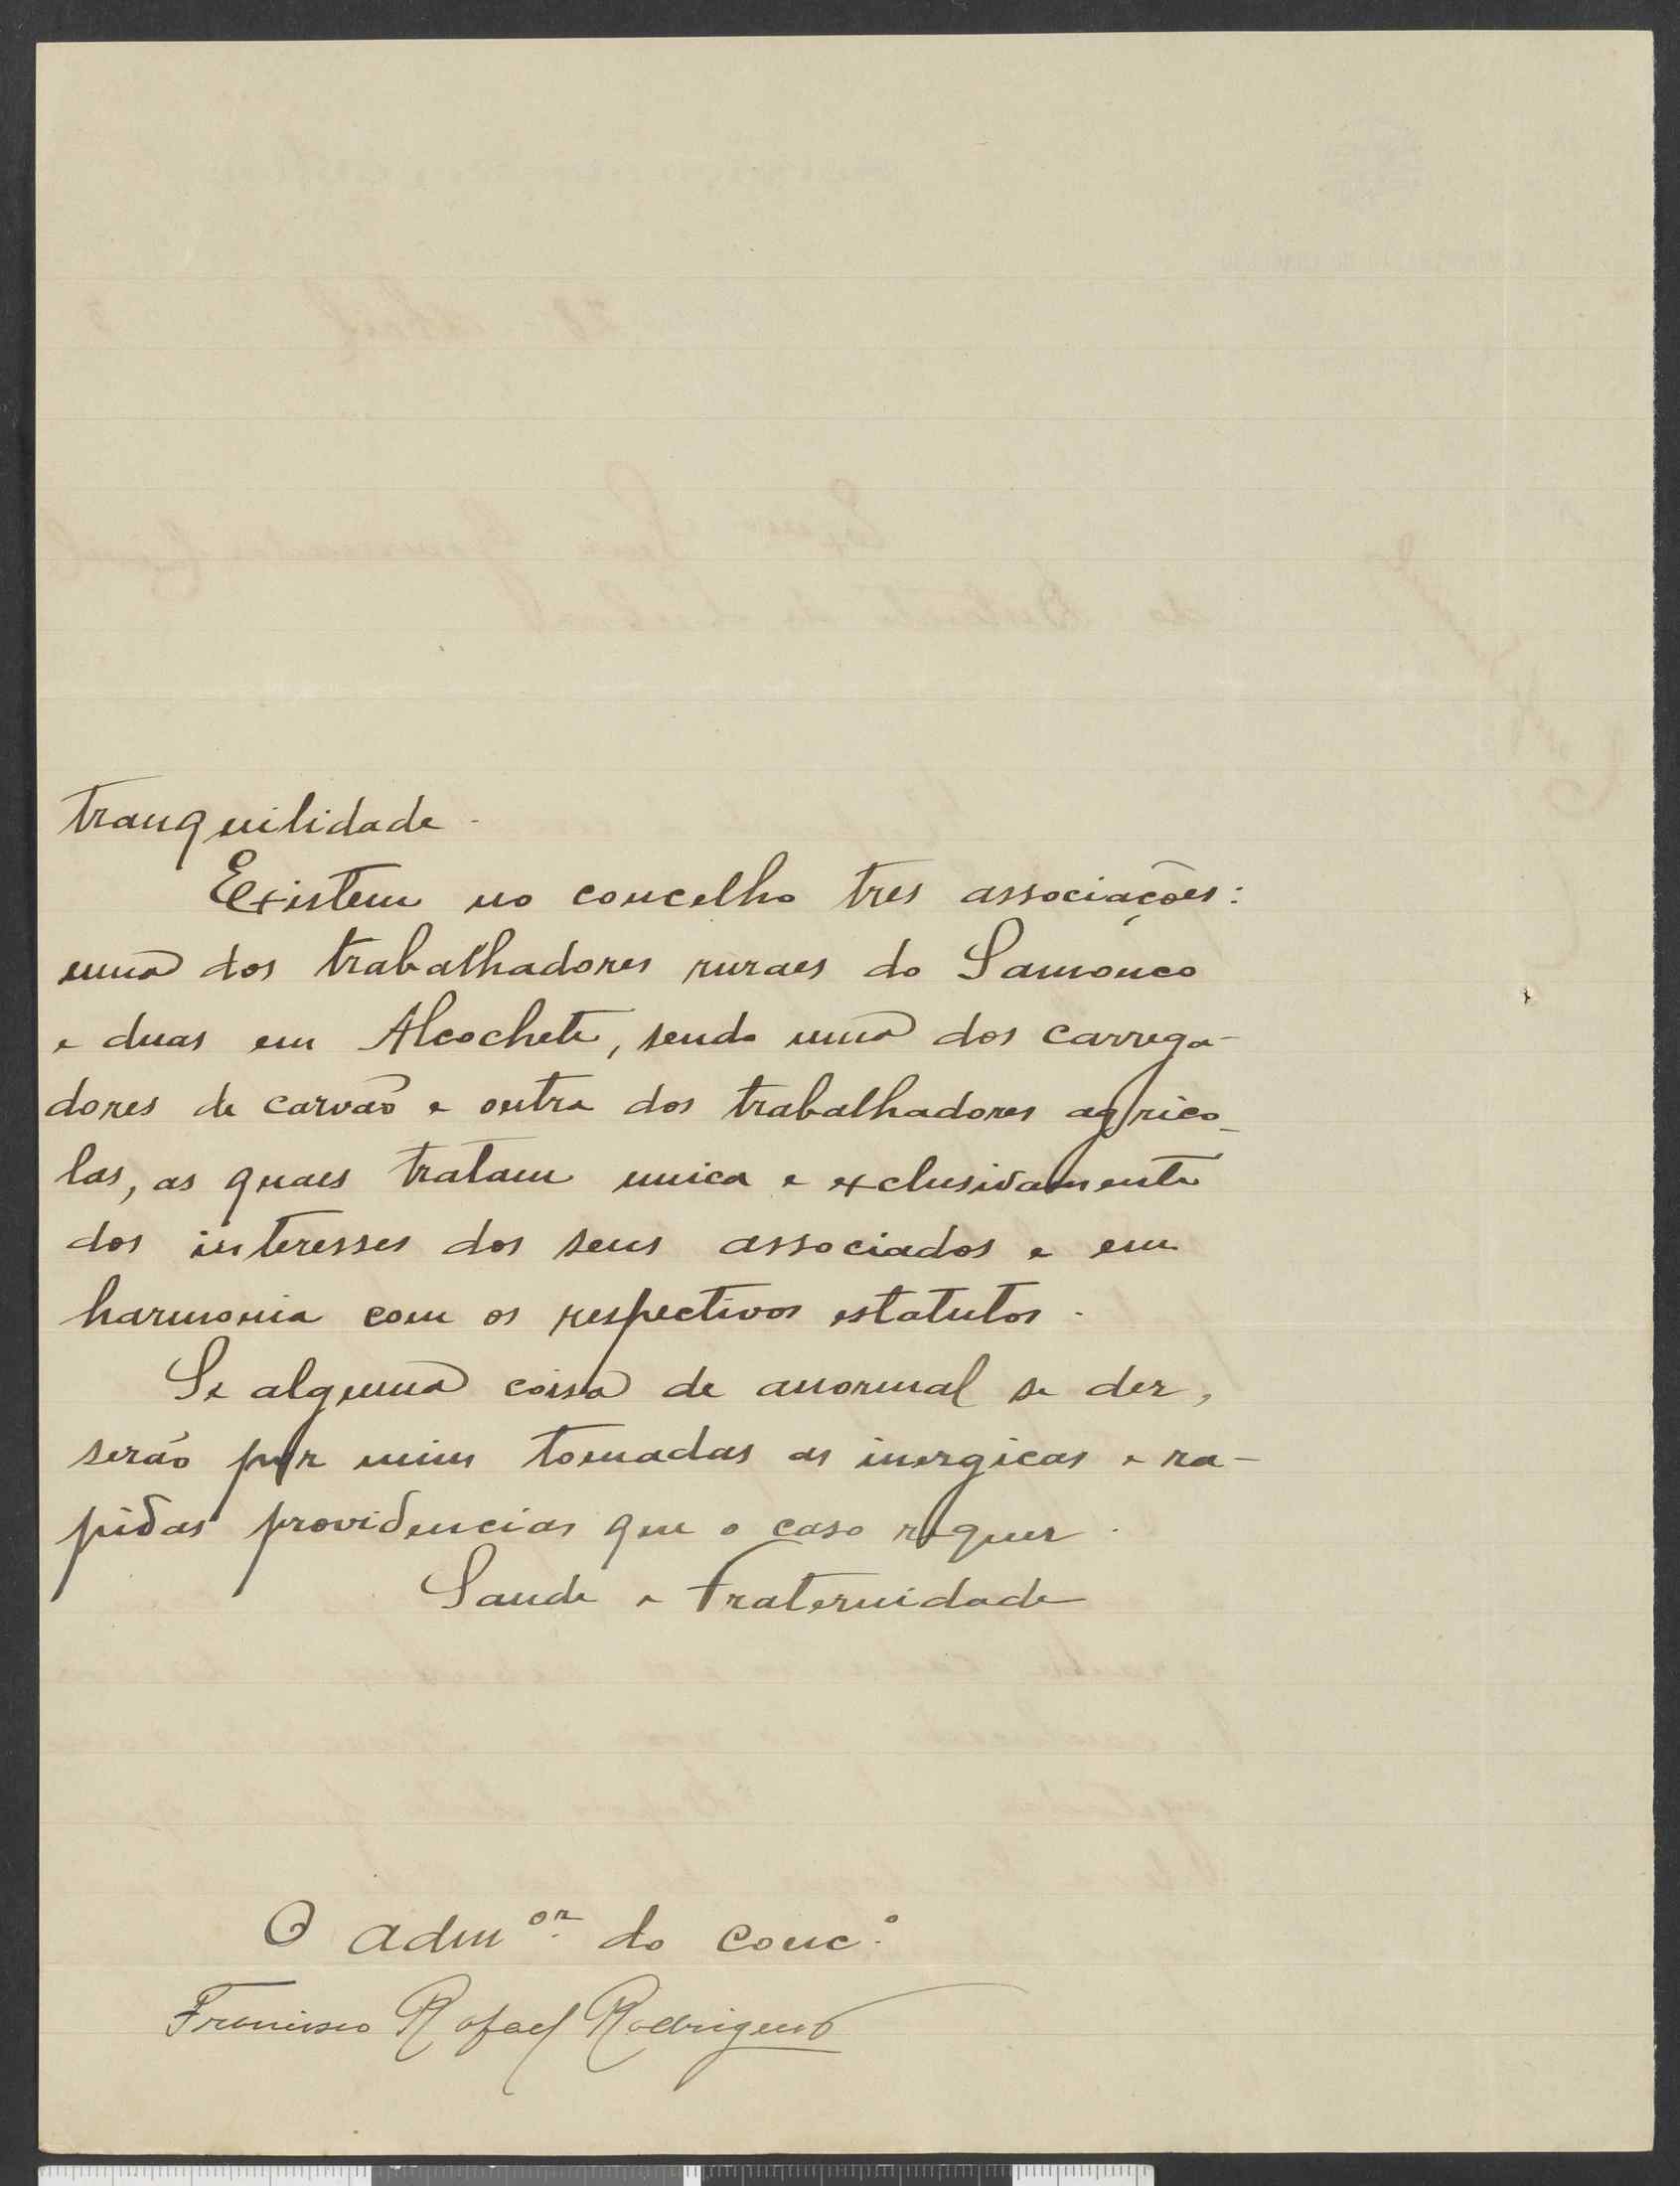 tranquilidade.
Existem no concelho tres associações:
uma dos trabalhadores ruraes do Samouco
e duas em Alcochete, sendo uma dos carrega-
dores de carvão e outra dos trabalhadores agrico-
las, as quaes tratam unica e exclusivamente
dos interesses dos seus associados e em
harmonia com os respectivos estatutos.
Se alguma coisa de anormal se der,
serão por mim tomadas as inergicas e ra-
pidas providencias que o caso requer.
Saude e Fraternidade
O admor. do conc.o
Francisco Rafael Rodrigues